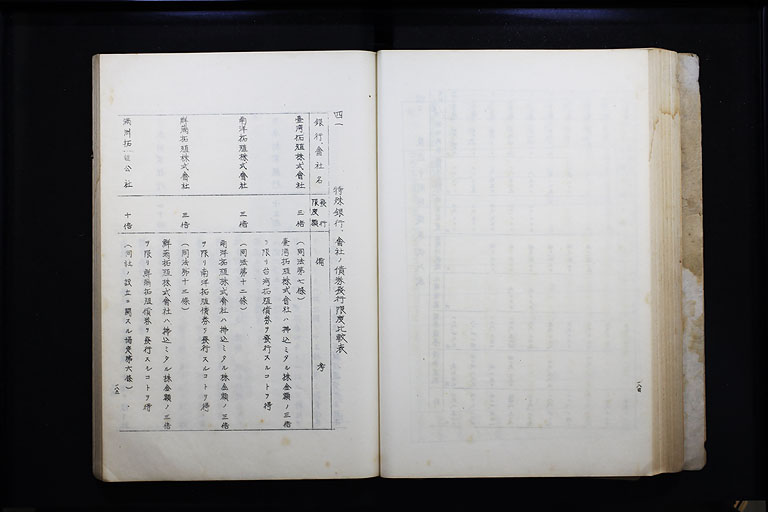 四一 特殊銀行、會社ノ債券發行限度比較表
銀行、會社名 發行限度額 備考
臺灣拓殖株式會社 三倍 (同法第七條)
臺灣拓殖株式會社ハ拂込ミタル株金額ノ三倍
ヲ限リ台灣拓殖債券ヲ發行スルコトヲ得
南洋拓殖株式會社 三倍 (同法第十二條)
南洋拓殖株式會社ハ拂込ミタル株金額ノ三倍
ヲ限リ南洋拓殖債券ヲ發行スルコトヲ得
鮮滿拓殖株式會社 三倍 (同法第十三條)
鮮滿拓殖株式會社ハ拂込ミタル株金額ノ三倍
ヲ限リ鮮滿拓殖債券ヲ發行スルコトヲ得
滿洲拓植公社 十倍 (同社ノ設立ニ關スル協定第六條)
一八五
一八四